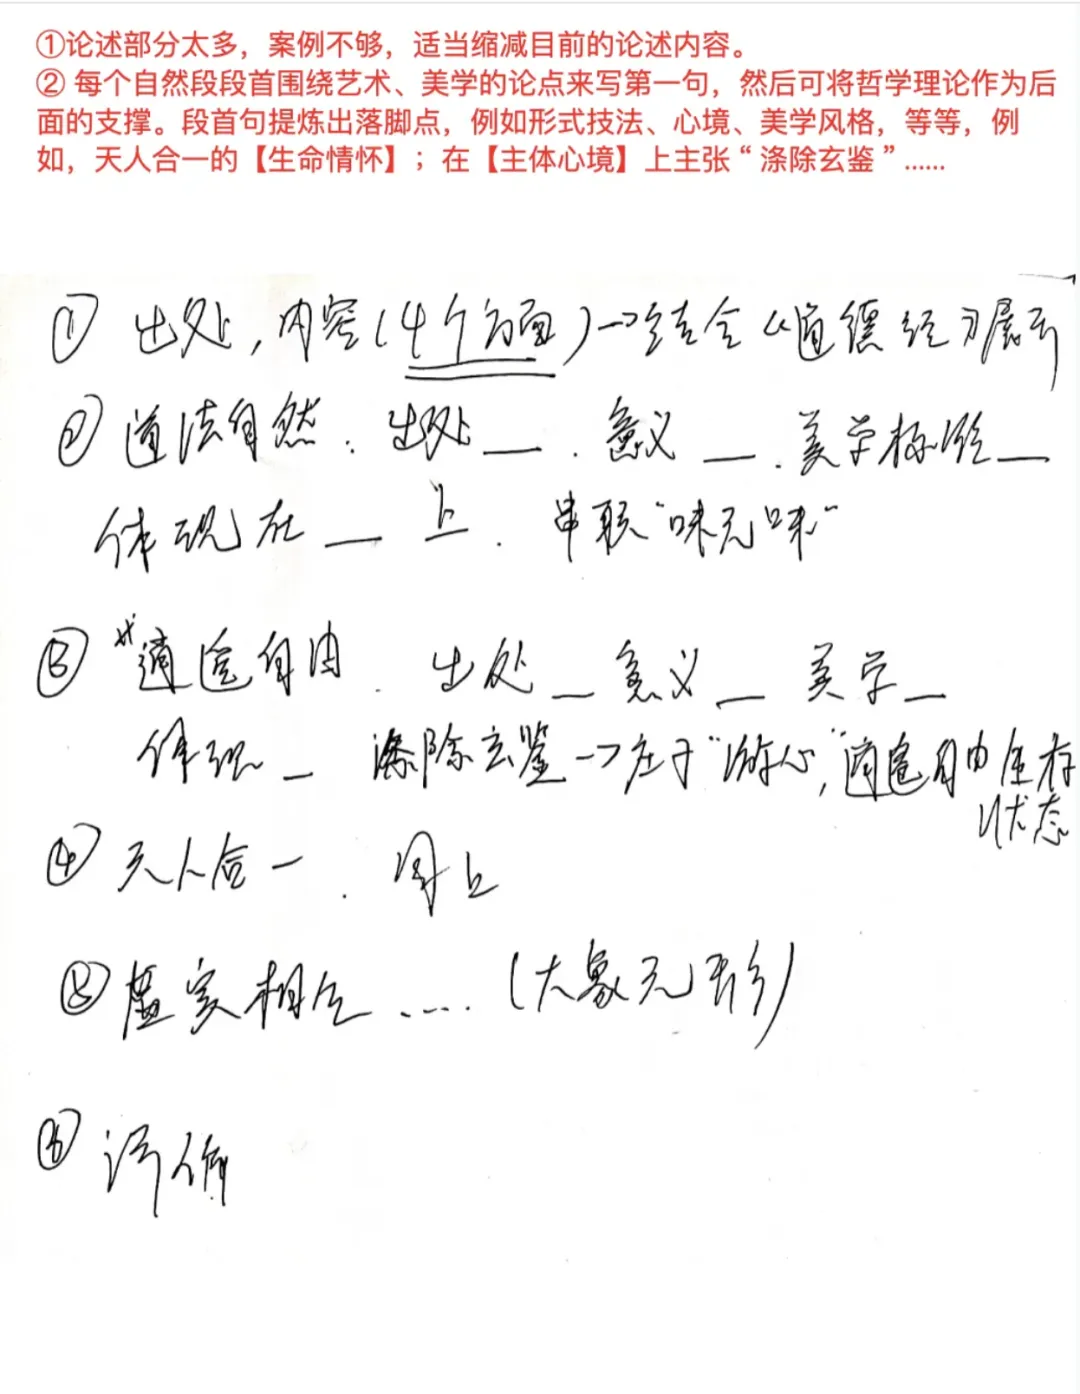 ①论述部分太多，案例不够，适当缩减目前的论述内容。
② 每个自然段段首围绕艺术、美学的论点来写第一句，然后可将哲学理论作为后
面的支撑。段首句提炼出落脚点，例如形式技法、心境、美学风格，等等，例
如，天人合一的【生命情怀】；在【主体心境】上主张“涤除玄鉴”......
① 出处，内容(4个方面)→结合《道德经》展开
② 道法自然．出处＿．意义＿．美学标准＿
体现在＿上．串联“味无味”
③ 逍遥自由．出处＿意义＿美学＿
体现＿ 涤除玄鉴→庄子“游心”，逍遥自由生存
状态
④ 天人合一．同上
⑤ 虚实相生．....(大象无形)
⑥ 评价